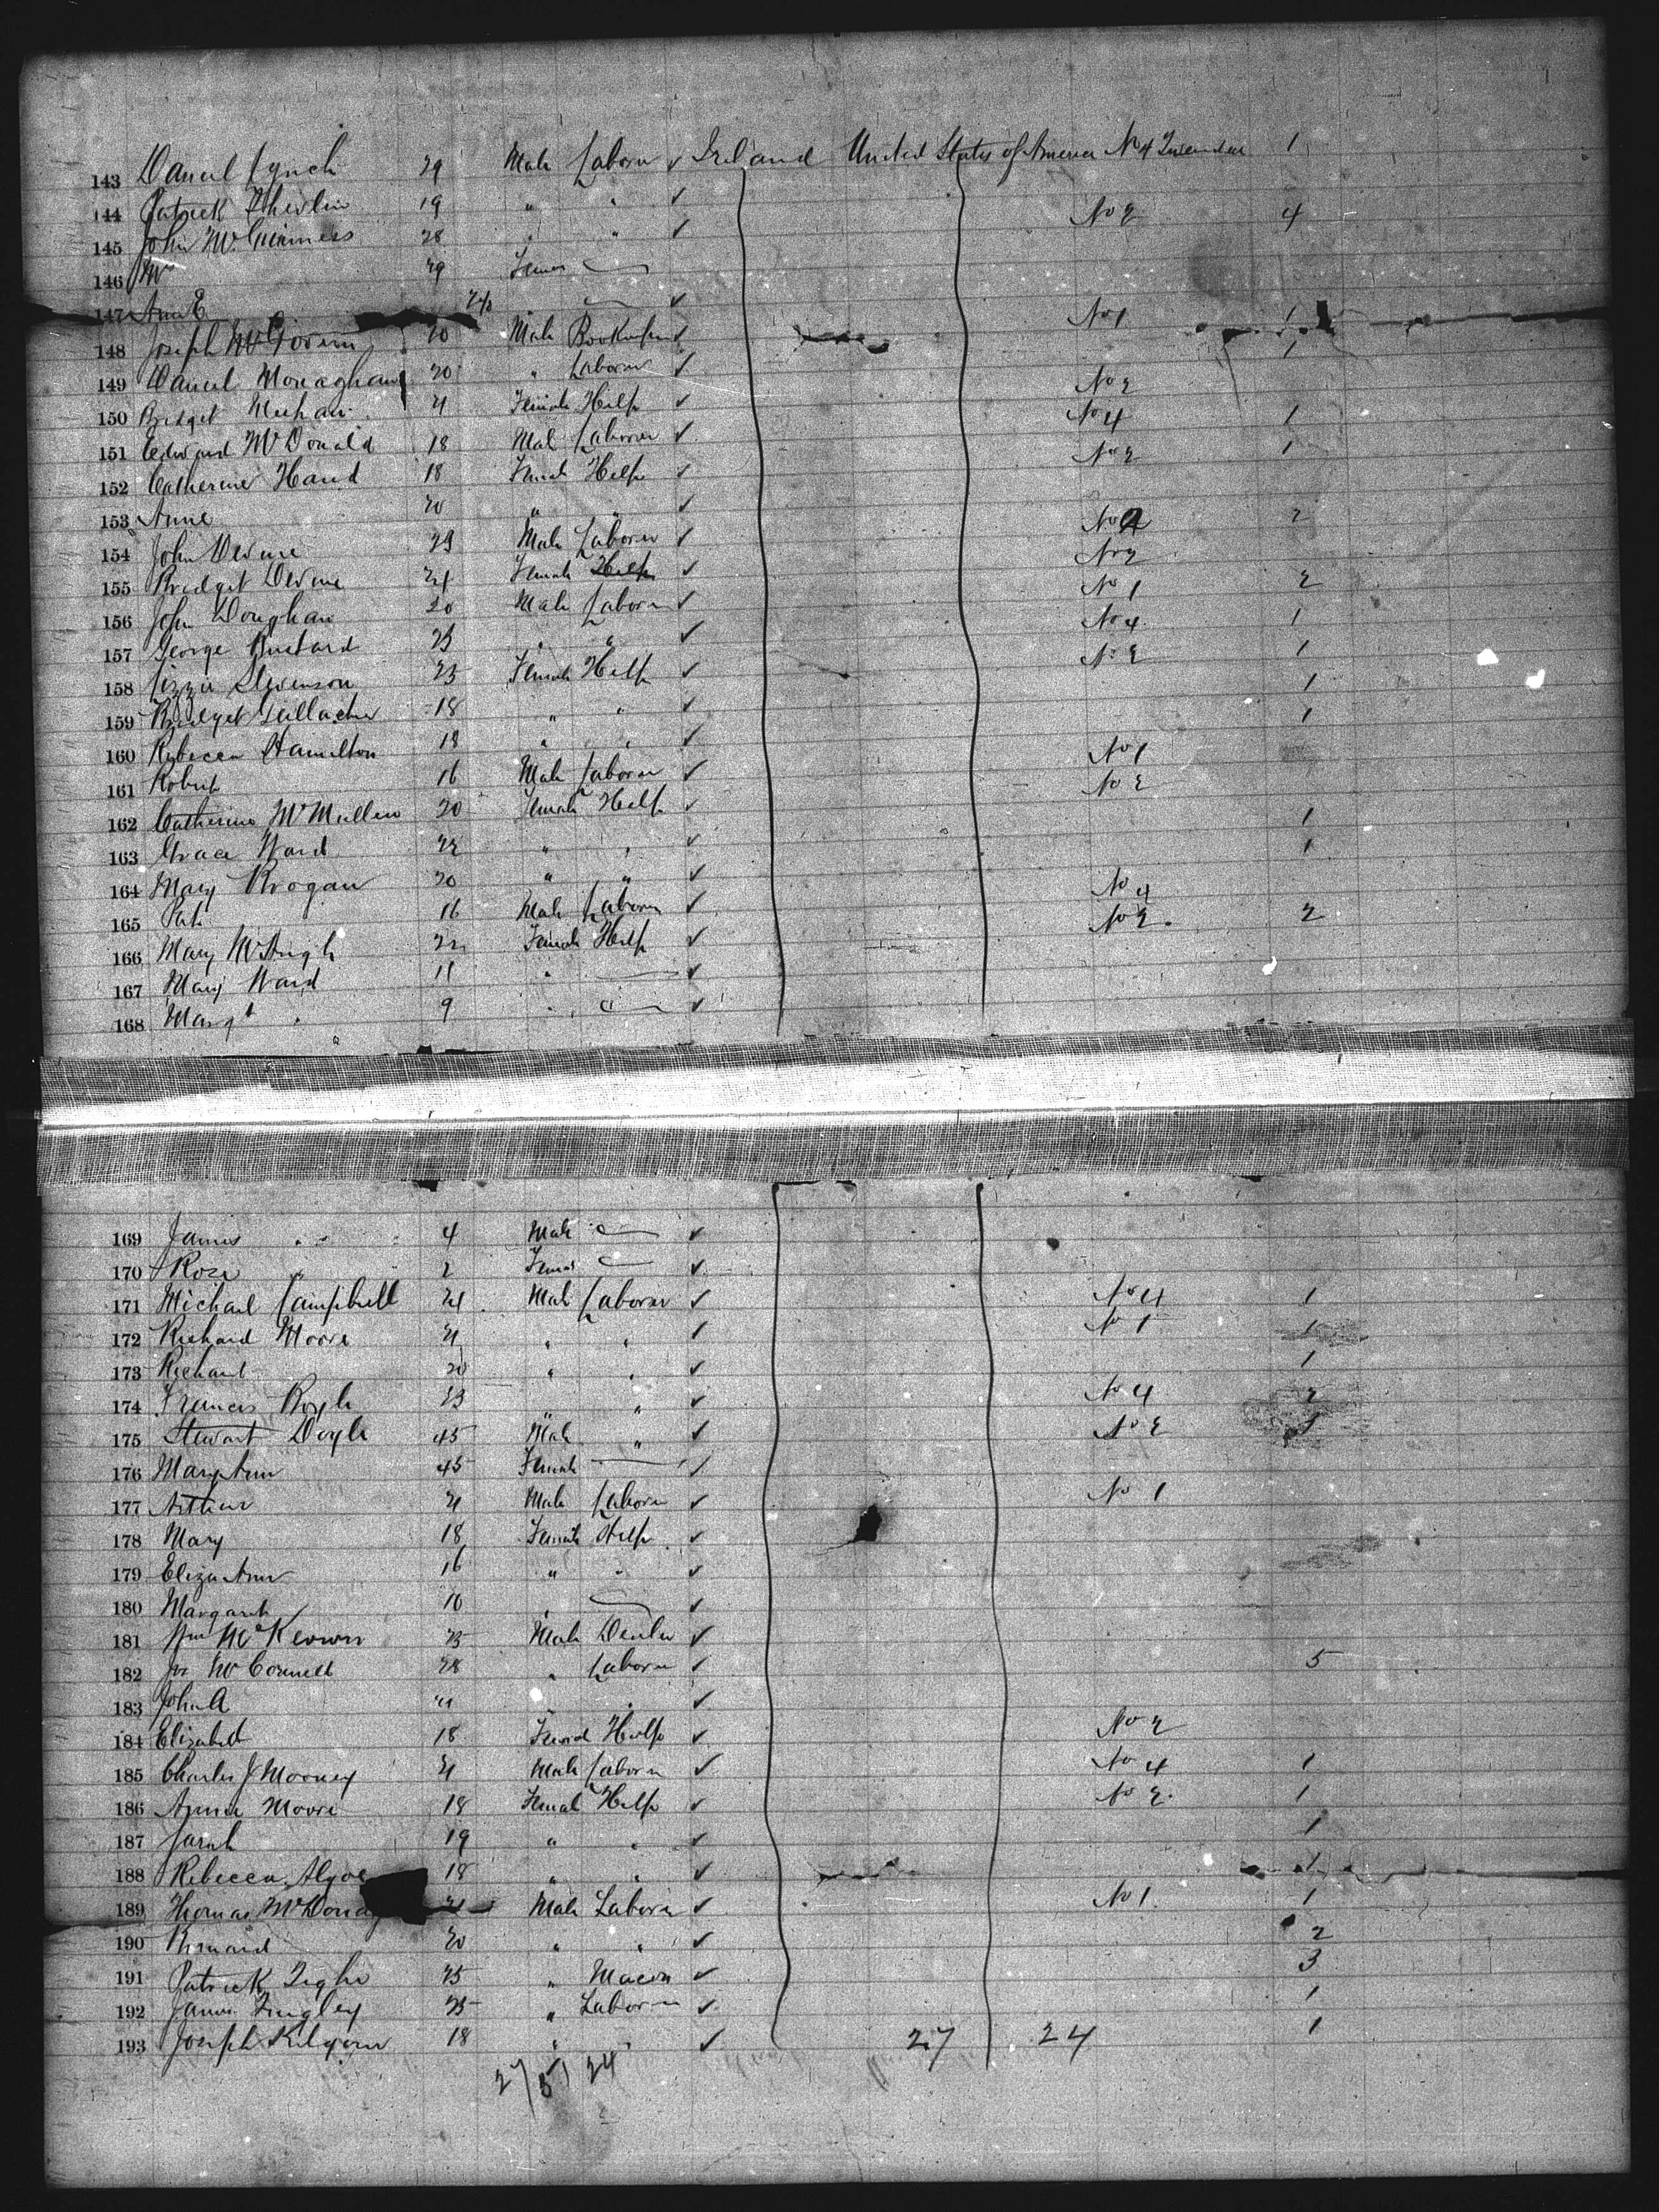 143 Daniel Lynch 29 Male Laborer ✓ Ireland United States of America No 4 1
144 Patrick 19 " " ✓
145 John McGuinness 28 " " ✓ No 2 4
146 Mrs 29
147 Ann E ✓
148 Joseph McGovern 20 Male ✓ No 1 1
149 Daniel Monaghan 20 " Laborer ✓ 1
150 Bridget Meehan 21 Female Help ✓ No 2
151 Edward McDonald 18 Male Laborer ✓ No 4 1
152 Catherine Hand 18 Female Help ✓ No 2 1
153 Anne 20 " " ✓
154 John Devine 23 Male Laborer ✓ 2
155 Bridget Devine 24 Female Help ✓ No 2
156 John 20 Male Laborer ✓ No 1 2
157 George Bustard " " ✓ No 4 1
158 Lizzie Stevenson 23 Female Help ✓ No 2 1
159 Bridget Gallacher 18 " " ✓ 1
160 Rebecca Hamilton 18 " " ✓ 1
161 Robert 16 Male Laborer ✓ No 1
162 Catherine McMullen 20 Female Help ✓ No 2
163 Grace Ward 22 " " ✓ 1
164 Mary Brogan 20 " " ✓ 1
165 Pat 16 Male Laborer ✓ No 4
166 Mary 22 Female Help ✓ No 2 2
167 Mary Ward 11 " ✓
168 Margt " 9 " ✓
169 James " 4 Male ✓
170 Rose " 2 ✓
171 Michael Campbell 21 Male Laborer ✓ No 4 1
172 Richard Moore 21 " " ✓ No 1 1
173 Richard 20 " " ✓ 1
174 Francis Boyle 23 " " ✓ No 4 2
175 Stewart Doyle 45 Male " ✓ No 2
176 Mary Ann 45 Female ✓
177 Arthur 21 Male Laborer ✓ No 1
178 Mary 18 Female Help ✓
179 Eliza Ann 16 " " ✓
180 Margaret 10 " ✓
181 Wm McKeown 25 Male Dealer ✓
182 McConnell 28 " Laborer ✓ 5
183 John A " " ✓
184 Elizabeth 18 Female Help ✓ No 2
185 Charles J Mooney 21 Male Laborer ✓ No 4 1
186 Annie Moore 18 Female Help ✓ No 2 1
187 Sarah 19 " " ✓ 1
188 Rebecca 18 " " ✓ 1
189 Thomas 21 Male Laborer ✓ No 1 1
190 Bernard 20 " " ✓ 2
191 Patrick Tighe 25 " Mason ✓ 3
192 James 25 " Laborer ✓ 1
193 Joseph Kilgour 18 " " ✓ 27 24 1
27 51 24